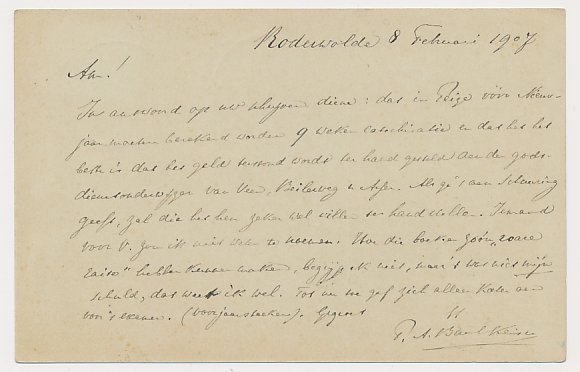 Roderwolde 8 Februari 1907
Am!
In antwoord op uw schrijven diene: dat in Peize vóór Nieuw-
jaar moeten berekend worden 9 weken catechisatie en dat het het
beste is dat het geld terstond wordt ter hand gesteld aan den gods-
dienstonderwijzer van Veen, Beilerweg Assen. Als gij 't aan
geeft, zal die het hem zeker wel willen ter hand stellen. Iemand
voor V. zou ik niet weten te noemen. Hoe die boeken zóó'n
hebben kunnen maken, begrijp ik niet, maar 't was niet mijn
schuld, dat weet ik wel. Tot in
(voorjaars Gegroet
P. A.